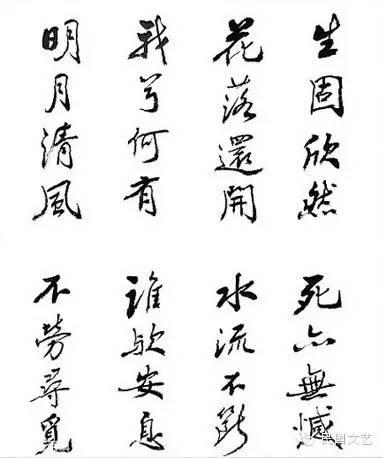 生固欣然
死亦無憾
花落還開
水流不斷
我兮何有
誰歟安息
明月清風
不勞尋覓
民国文艺